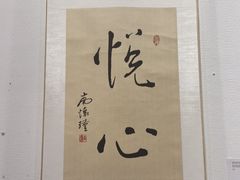 悦心
南怀瑾